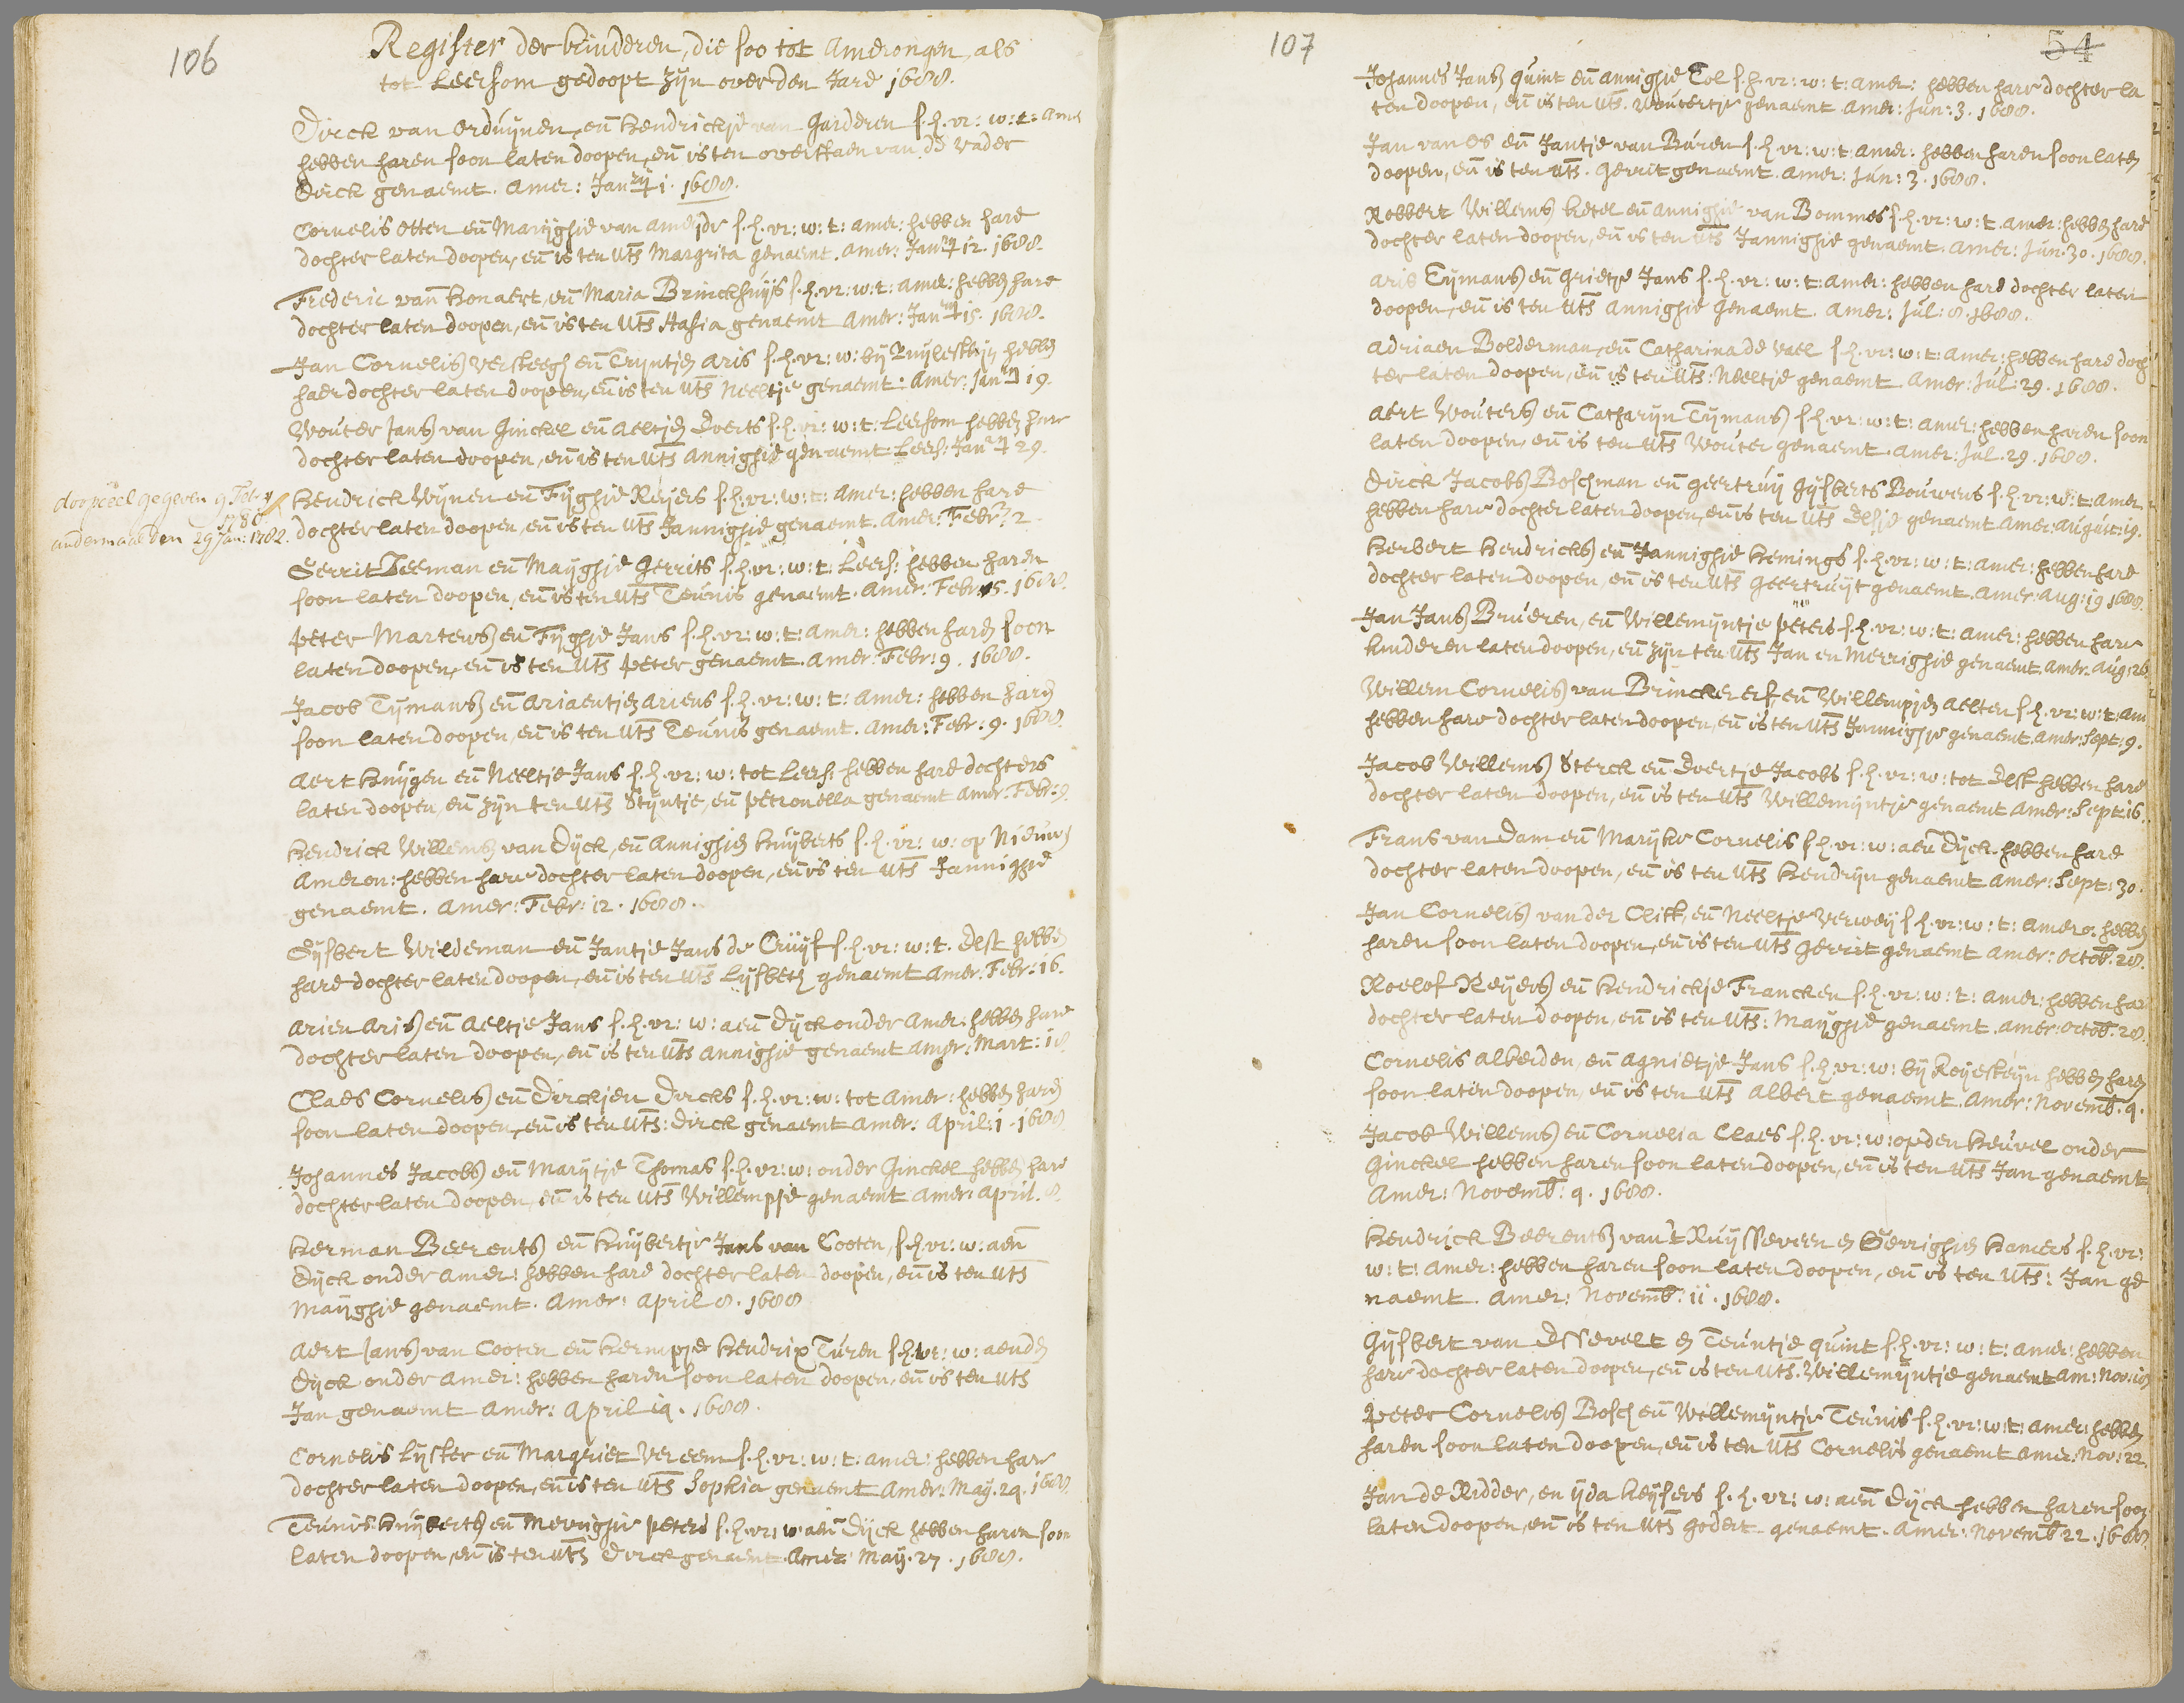 106
Register der kinderen, die soo tot Amerongen, als
tot Leersom gedoopt zijn over den Jare 1688.
Dirck van Orduijnen, eñ Hendrickje van Garderen s.h.vr: w:t: Amer
hebben haren soon laten doopen, eñ is ten overstaen van de vader
Dirck genaemt. Amer: Janrij 1. 1688.
Cornelis Otten eñ Marijghje van Ameijde s.h.vr: w:t: Amer: hebben hare
dochter laten doopen, eñ is ten uts Margrita genaemt. Amer: Janrij 12. 1688.
Frederic van Honaert, eñ Maria Brinckhuijs s.h.vr: w:t: Amer: hebben hare
dochter laten doopen, eñ is ten uts Hasia genaemt Amer: Janrij 15. 1688.
Jan Cornelis Versteegh eñ Trijntjen Aris s.h.vr: w: bij Zuijlesteijn hebben
haer dochter laten doopen, eñ is ten uts Neeltje genaemt: Amer: Janrij 19.
Wouter Jans van Ginckel eñ Aeltjen Everts s.h.vr: w:t: Leersom hebben hare
dochter laten doopen, eñ is ten uts Annighje genaemt Leers: Janrij 29.
doopceel gegeven 9 Febry
1780
andermael den 29 Jan: 1782.
Hendrick Wijnen eñ Fijghje Reijers s.h.vr: w:t: Amer: hebben hare
dochter laten doopen, eñ is ten uts Jannighje genaemt. Amer: Febr: 2.
Gerrit Teeman eñ Maijghje Gerrits s.h.vr: w:t: Leers: hebben haren
soon laten doopen, eñ is ten uts Teunis genaemt. Amer: Febr: 5. 1688.
Peter Martens eñ Fijghje Jans s.h.vr: w:t: Amer: hebben haren soon
laten doopen, eñ is ten uts Peter genaemt. Amer: Febr: 9. 1688.
Jacob Tijmans eñ Ariaentjen Ariens s.h.vr: w:t: Amer: hebben haren
soon laten doopen, eñ is ten uts Teunis genaemt. Amer: Febr: 9. 1688.
Aert Huijgen eñ Neeltje Jans s.h.vr: w: tot Leers: hebben hare dochters
laten doopen, eñ zijn ten uts Stijntje, eñ Petronella genaemt Amer: Febr: 9.
Hendrick Willems van Dijck, eñ Annighjen Huijberts s.h.vr: w: op Nieuw
Ameron: hebben hare dochter laten doopen, eñ is ten uts Jannighje
genaemt. Amer: Febr: 12. 1688.
Gijsbert Wildeman eñ Jantje Jans de Cruijf s.h.vr: w:t. Elst hebben
hare dochter laten doopen, eñ is ten uts Lijsbeth genaemt Amer: Febr: 16.
Arien Aris eñ Aeltje Jans s.h.vr: w: aen Dijck onder Amer: hebben hare
dochter laten doopen, eñ is ten uts Annighje genaemt Amer: Mart: 18
Claes Cornelis eñ Dirckjen Dircks s.h.vr: w: tot Amer: hebben haren
soon laten doopen, eñ is ten uts: Dirck genaemt Amer: April: 1. 1688
Johannes Jacobs eñ Marijtje Thomas s.h.vr: w: onder Ginckel hebben hare
dochter laten doopen, eñ is ten uts Willempje genaemt Amer: April. 8.
Herman Beerents eñ Huijbertje Jans van Cooten, s.h.vr: w: aen
Dijck onder Amer: hebben hare dochter laten doopen, eñ is ten uts
Maijghje genaemt. Amer: April 8. 1688
Aert Jans van Cooten eñ Hermpje Hendrix Turen s.h.vr: w: aenden
Dijck onder Amer: hebben haren soon laten doopen, eñ is ten uts
Jan genaemt Amer: April 19. 1688.
Cornelis Lijster eñ Margriet Vereem s.h.vr: w:t: Amer: hebben hare
dochter laten doopen, eñ is ten uts Sophia genaemt Amer: Maij. 29. 1688
Teunis Huijberts eñ Merrighje Peters s.h.vr: w: aen Dijck hebben haren soon
laten doopen, eñ is ten uts Dirck genaemt. Amer: Maij. 27. 1688.
107
54
Johannes Jans Quint eñ Annighje Tol s.h.vr: w:t: Amer: hebben hare dochter la
ten doopen, eñ is ten uts. Woutertje genaemt Amer: Jun: 3. 1688.
Jan van Os eñ Jantje van Buren s.h.vr: w:t: Amer: hebben haren soon laten
doopen, eñ is ten uts. Gerrit genaemt. Amer: Jun: 3. 1688.
Robbert Willems Ketel eñ Annighje van Bommes s.h.vr: w:t Amer: hebben hare
dochter laten doopen, eñ is ten uts Jannighje genaemt. Amer: Jun. 30. 1688.
Aris Tijmans eñ Grietje Jans s.h.vr: w:t: Amer: hebben hare dochter laten
doopen, eñ is ten uts Annighje genaemt. Amer: Jul: 8. 1688.
Adriaen Bolderman, eñ Catharina de Vael s.h.vr: w:t: Amer: hebben hare doch
ter laten doopen, eñ is ten uts: Neeltje genaemt Amer: Jul: 29. 1688.
Aert Wouters eñ Catharijn Tijmans s.h.vr: w:t: Amer: hebben haren soon
laten doopen, eñ is ten uts Wouter genaemt. Amer: Jul. 29. 1688.
Dirck Jacobs Boschman eñ Geertruij Gijsberts Bouwens s.h.vr: w:t: Amer
hebben hare dochter laten doopen, eñ is ten uts Elsje genaemt Amer: August: 19.
Herbert Hendricks eñ Jannighje Hemings s.h.vr: w:t: Amer: hebben hare
dochter laten doopen, eñ is ten uts Geertruijt genaemt. Amer: Aug: 19 1688.
Jan Jans Brueren, eñ Willemijntje Peters s.h.vr: w:t: Amer: hebben hare
kinderen laten doopen, eñ zijn ten uts Jan en Merrighje genaemt Amer. Aug: 26
Willem Cornelis van Brincker erf, eñ Willempjen Aelten s.h.vr: w:t: Am
hebben hare dochter laten doopen, eñ is ten uts Jannighje genaemt Amer: Sept: 9.
Jacob Willems Sterck eñ Evertje Jacobs s.h.vr: w: tot Elst hebben hare
dochter laten doopen, eñ is ten uts Willemijntje genaemt Amer: Sept: 16.
Frans van Dam eñ Marijke Cornelis s.h.vr: w: aen Dijck hebben hare
dochter laten doopen, eñ is ten uts Hendrijn genaemt Amer: Sept: 30.
Jan Cornelis van der Clift, eñ Neeltje Verweij s.h.vr: w:t: Amero: hebben
haren soon laten doopen, eñ is ten uts Gerrit genaemt Amer: Octob: 28.
Roelof Reijers eñ Hendrickje Francken s.h.vr: w:t: Amer: hebben hare
dochter laten doopen, eñ is ten uts: Maijghje genaemt Amer: Octob: 28.
Cornelis Alberden, eñ Agnietje Jans s.h.vr: w: bij Reijesteijn hebben haren
soon laten doopen, eñ is ten uts Albert genaemt. Amer: Novemb. 9.
Jacob Willems eñ Cornelia Claes s.h.vr: w: op den Heuvel onder
Ginckel hebben haren soon laten doopen, eñ is ten uts Jan genaemt
Amer: Novemb: 9. 1688.
Hendrick Beerents van 't Ruijsseveen en Gerrighjen Hamers s.h.vr:
w:t: Amer: hebben haren soon laten doopen, eñ is ten uts: Jan ge
naemt. Amer: Novemb: 11. 1688.
Gijsbert van Essevelt en Teuntje Quint s.h.vr: w:t: Amer: hebben
hare dochter laten doopen, eñ is ten uts: Willemijntje genaemt Am: Nov: 18
Peter Cornelis Bosch eñ Willemijntje Teunis s.h.vr: w:t: Amer: hebben
haren soon laten doopen, eñ is ten uts Cornelis genaemt Amer. Nov: 22.
Jan de Ridder, en Ijda Keijsers s.h.vr: w: aen Dijck hebben haren soon
laten doopen, eñ is ten uts Godert genaemt. Amer: Novemb 22. 1688.